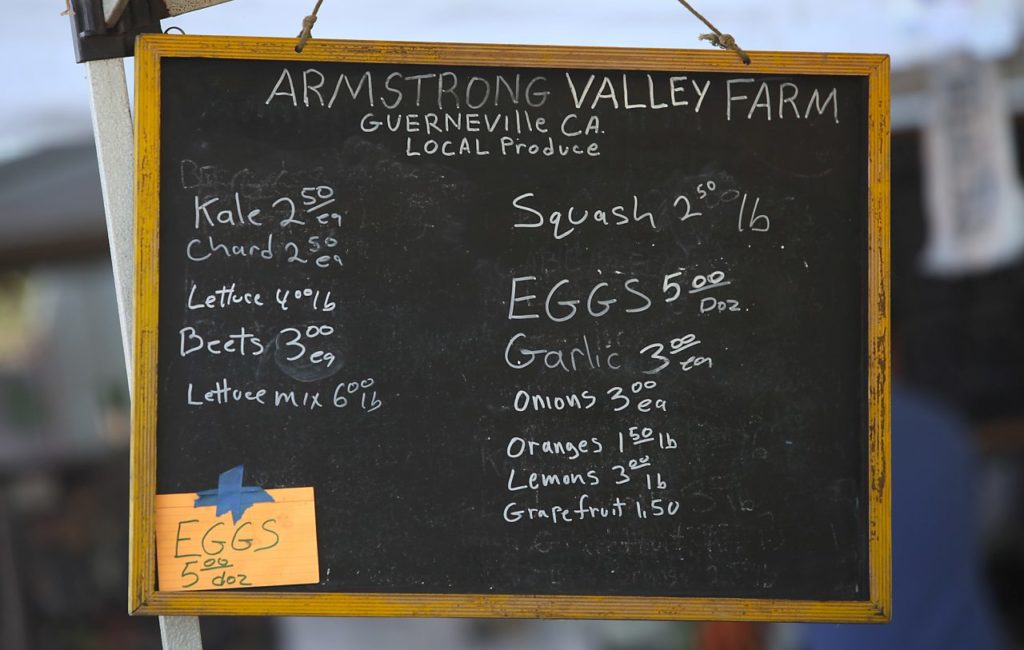 ARMSTRONG VALLEY FARM
GUERNEVILLE CA.
LOCAL Produce
Kale 2 50 ea
Chard 2 50 ea
Lettuce 4 00 lb
Beets 3 00 ea
Lettuce mix 6 00 lb
Squash 2 50 lb
EGGS 5 00 Doz.
Garlic 3 00 ea
Onions 3 00 ea
Oranges 1 50 lb
Lemons 3 00 lb
Grapefruit 1.50
EGGS
5 00 doz